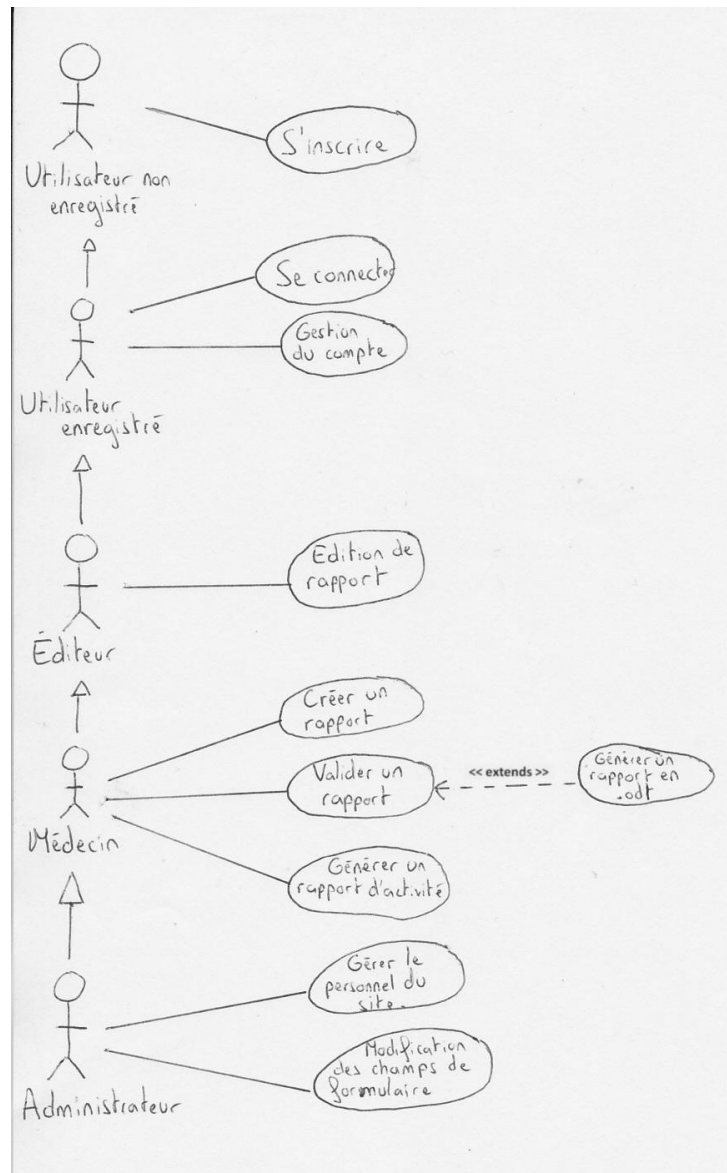 S'inscrire
Utilisateur non
enregistré
Se connecter
Gestion
du compte
Utilisateur
enregistré
Edition de
rapport
Éditeur
Créer un
rapport
Valider un
rapport
<< extends >>
Générer un
rapport en
.odt
Médecin
Générer un
rapport d'activité
Gérer le
personnel du
site.
Modification
des champs de
formulaire
Administrateur